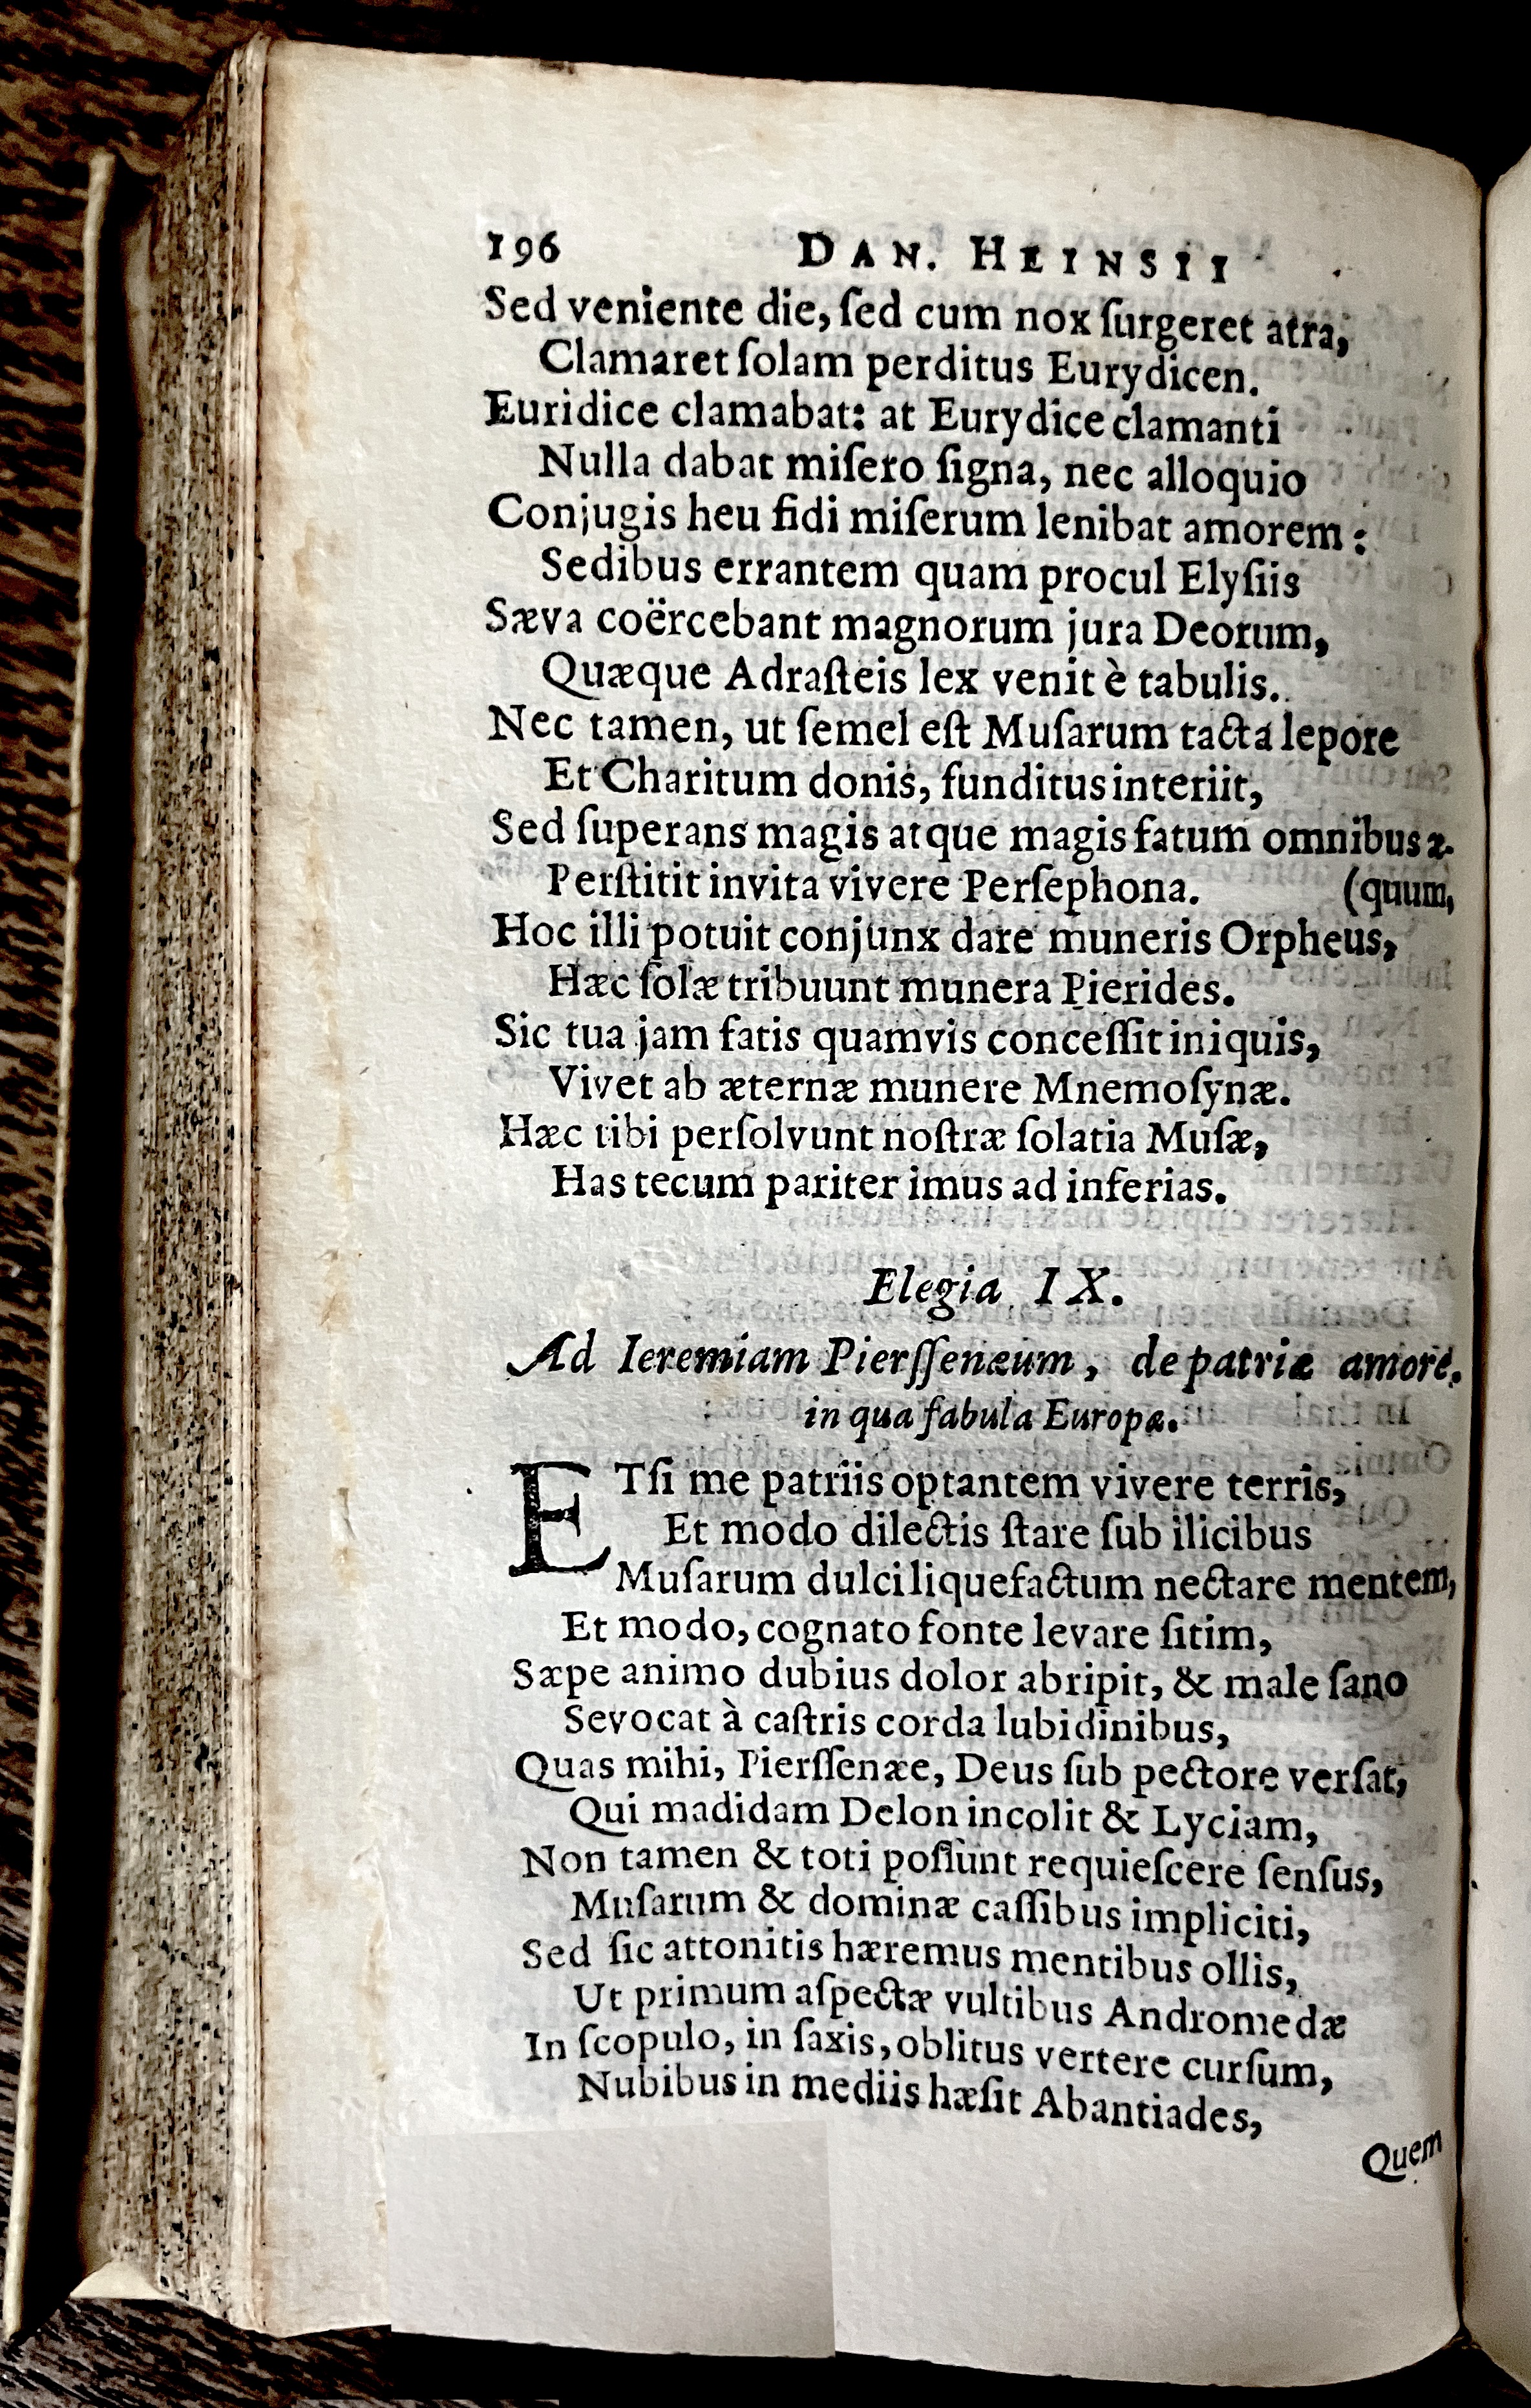 196 DAN. HEINSII
Sed veniente die, ſed cum nox ſurgeret atra,
Clamaret ſolam perditus Eurydicen.
Euridice clamabat: at Eurydice clamanti
Nulla dabat miſero ſigna, nec alloquio
Conjugis heu fidi miſerum lenibat amorem:
Sedibus errantem quam procul Elyſiis
Sæva coërcebant magnorum jura Deorum,
Quæque Adraſteis lex venit è tabulis.
Nec tamen, ut ſemel eſt Muſarum tacta lepore
Et Charitum donis, funditus interiit,
Sed ſuperans magis atque magis fatum omnibus æ-
Perſtitit invita vivere Perſephona. (quum,
Hoc illi potuit conjunx dare muneris Orpheus,
Hæc ſolæ tribuunt munera Pierides.
Sic tua jam fatis quamvis conceſſit iniquis,
Vivet ab æternæ munere Mnemoſynæ.
Hæc tibi perſolvunt noſtræ ſolatia Muſæ,
Has tecum pariter imus ad inferias.
Elegia IX.
Ad Ieremiam Pierſſenæum, de patriæ amore,
in qua fabula Europæ.
ETſi me patriis optantem vivere terris,
Et modo dilectis ſtare ſub ilicibus
Muſarum dulci liquefactum nectare mentem,
Et modo, cognato fonte levare ſitim,
Sæpe animo dubius dolor abripit, & male ſano
Sevocat à caſtris corda lubidinibus,
Quas mihi, Pierſſenæe, Deus ſub pectore verſat,
Qui madidam Delon incolit & Lyciam,
Non tamen & toti poſſunt requieſcere ſenſus,
Muſarum & dominæ caſſibus impliciti,
Sed ſic attonitis hæremus mentibus ollis,
Ut primum aſpectæ vultibus Andromedæ
In ſcopulo, in ſaxis, oblitus vertere curſum,
Nubibus in mediis hæſit Abantiades,
Quem